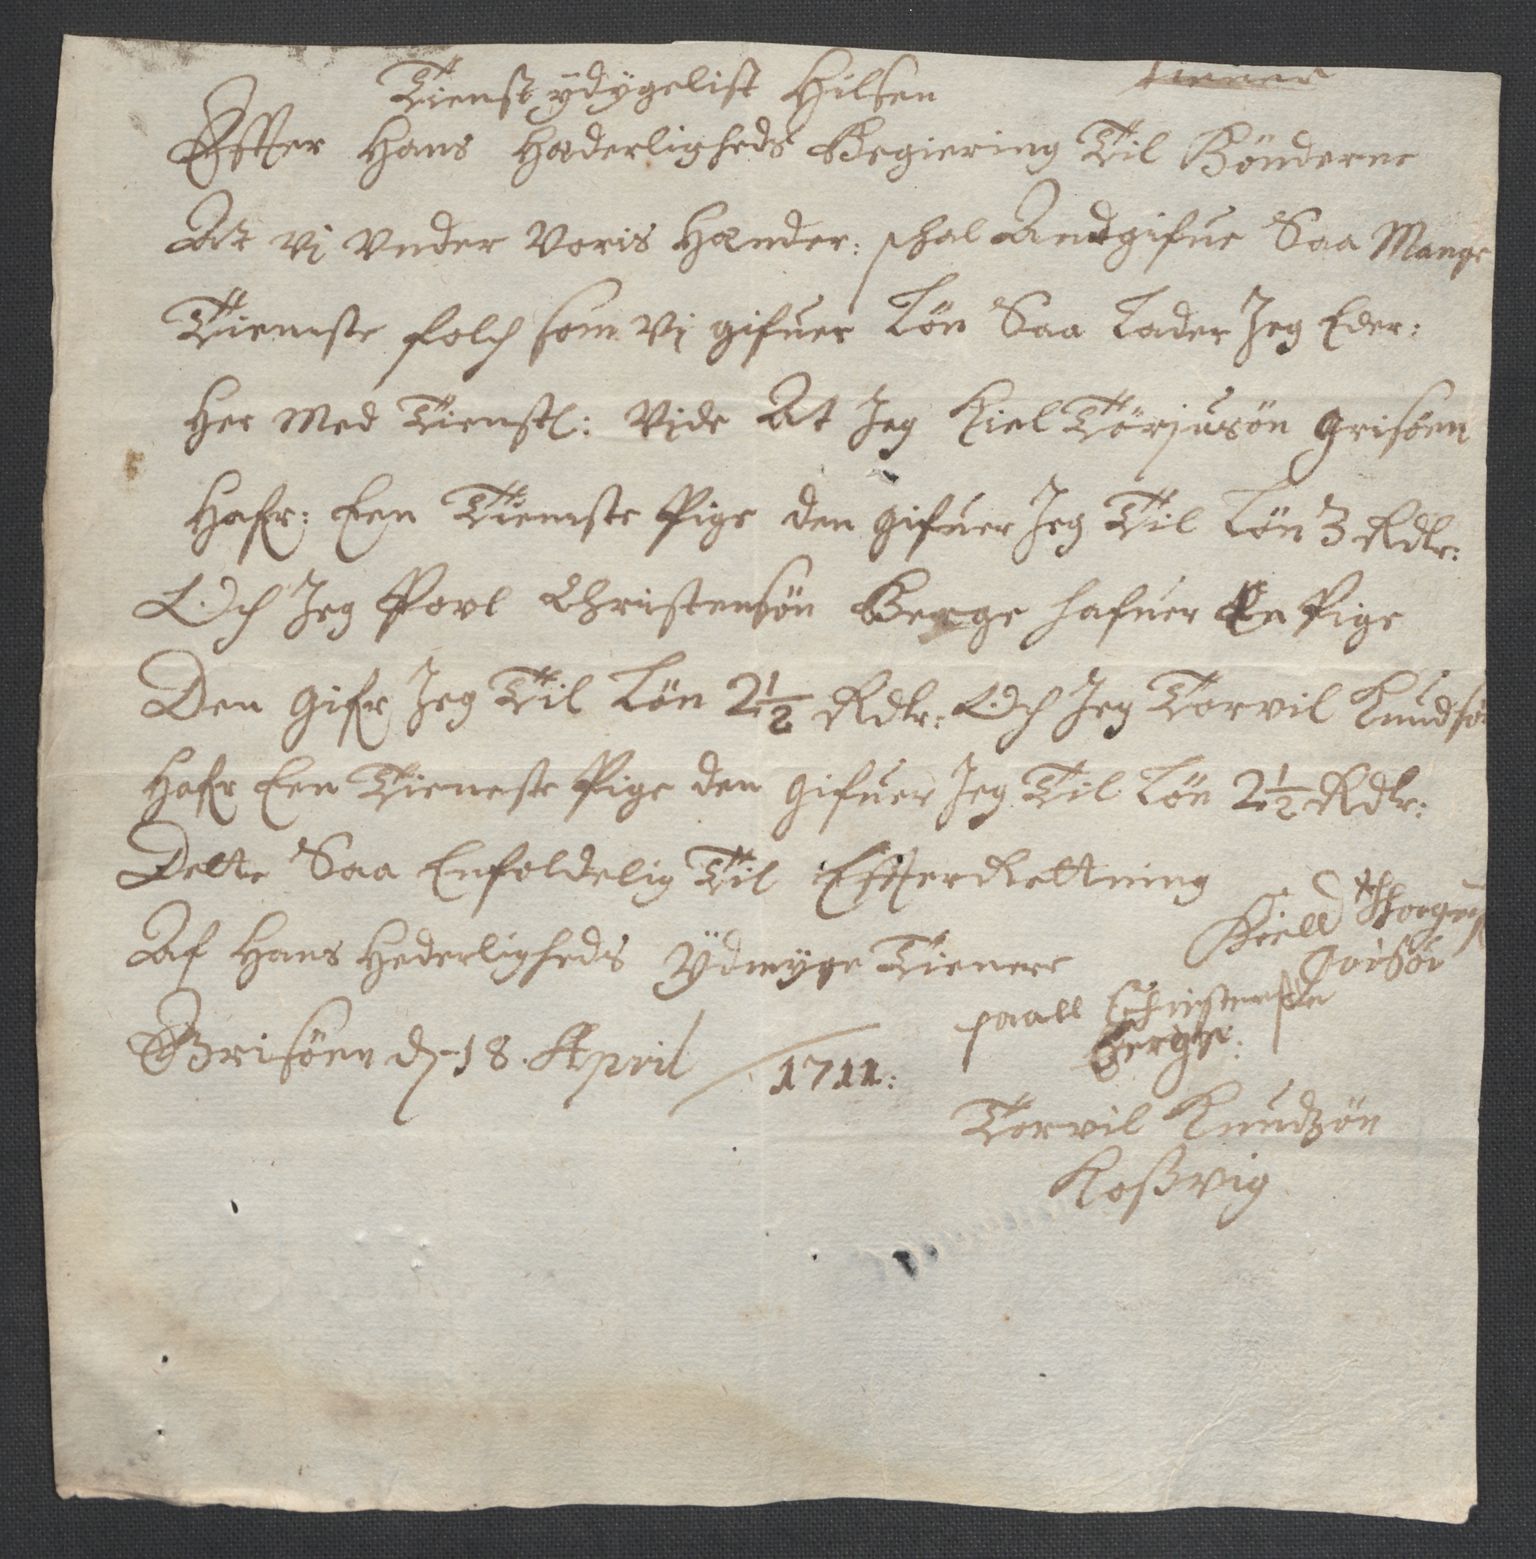 Tienst ydygelist Hilsen
Effter Hans Hæderligheds Begiering Til Bönderne
At vi vnder Voris Hænder: schal Andgifue Saa Mange
Tienneste folch som Vi gifuer Løn Saa Lader Jeg Eder:
Her Med Tienstl: Vide At Jeg Kiel Törjusön Grisöen
Hafr: Een Tienneste Pige den gifuer Jeg Til Løn 3 Rdlr:
Och Jeg Povl Christensön Berge hafuer En Pige
Den Gifr Jeg Til Løn 2½ Rdlr: Och Jeg Torvil Knudsön
Hafr Een Tienneste Pige den gifuer Jeg Til Løn 2½ Rdlr:
Dette Saa Enfoldelig Til EffterRettning
Af Hans Hederligheds Ydmyge Tienere
Grisöen d. 18. April 1711:
Kield
paall
Berge:
Torvil Knudzön
Koßvig